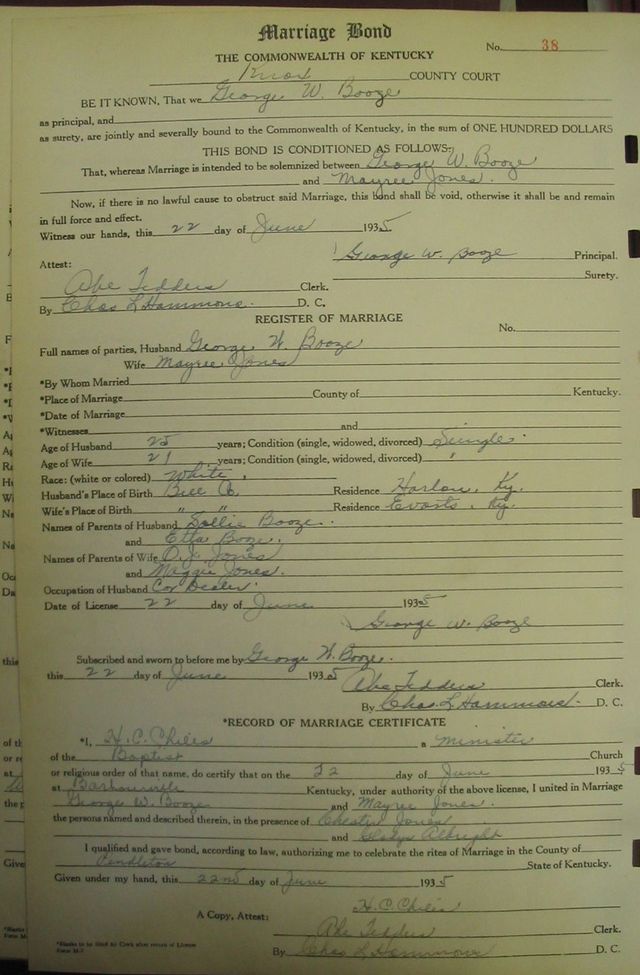 Marriage Bond
No. 38
THE COMMONWEALTH OF KENTUCKY
Knox COUNTY COURT
BE IT KNOWN, That we George W. Booze
as principal, and
as surety, are jointly and severally bound to the Commonwealth of Kentucky, in the sum of ONE HUNDRED DOLLARS
THIS BOND IS CONDITIONED AS FOLLOWS:
That, whereas Marriage is intended to be solemnized between George W. Booze
and Mayree Jones.
Now, if there is no lawful cause to obstruct said Marriage, this bond shall be void, otherwise it shall be and remain
in full force and effect.
Witness our hands, this 22 day of June 1935
George W. Booze Principal.
Attest: Surety.
Abe Tedders Clerk.
By Chas L Hammons. D. C.
REGISTER OF MARRIAGE
No.
Full names of parties, Husband George W. Booze
Wife Mayree Jones
*By Whom Married
*Place of Marriage County of Kentucky.
*Date of Marriage
*Witnesses and
Age of Husband 25 years; Condition (single, widowed, divorced) Single.
Age of Wife 21 years; Condition (single, widowed, divorced) "
Race: (white or colored) White.
Husband's Place of Birth Bell Co. Residence Harlan, Ky.
Wife's Place of Birth " " Residence Evarts, Ky.
Names of Parents of Husband Sollie Booze.
and Etta Booze.
Names of Parents of Wife O.J. Jones
and Maggie Jones.
Occupation of Husband Car Dealer.
Date of License 22 day of June 1935
George W. Booze
Subscribed and sworn to before me by George W. Booze.
this 22 day of June 1935
Abe Tedders Clerk.
By Chas. L Hammons. D. C.
*RECORD OF MARRIAGE CERTIFICATE
*I, H. C. Chiles a minister
of the Baptist Church
or religious order of that name, do certify that on the 22 day of June 1935
at Barbourville Kentucky, under authority of the above license, I united in Marriage
George W. Booze and Mayree Jones.
the persons named and described therein, in the presence of Chester Jones
and Gladys Albright
I qualified and gave bond, according to law, authorizing me to celebrate the rites of Marriage in the County of
Pendleton State of Kentucky.
Given under my hand, this 22nd day of June 1935
H. C. Chiles
A Copy, Attest:
Abe Tedders Clerk.
*Blanks to be filled by Clerk after return of License
Form M-7
By Chas L Hammons D. C.